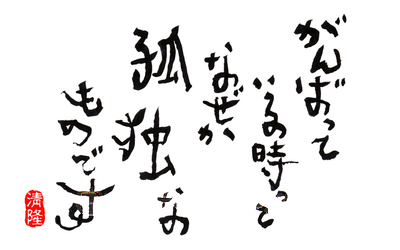 がんばって
いる時って
なぜか
孤独な
ものです
清隆